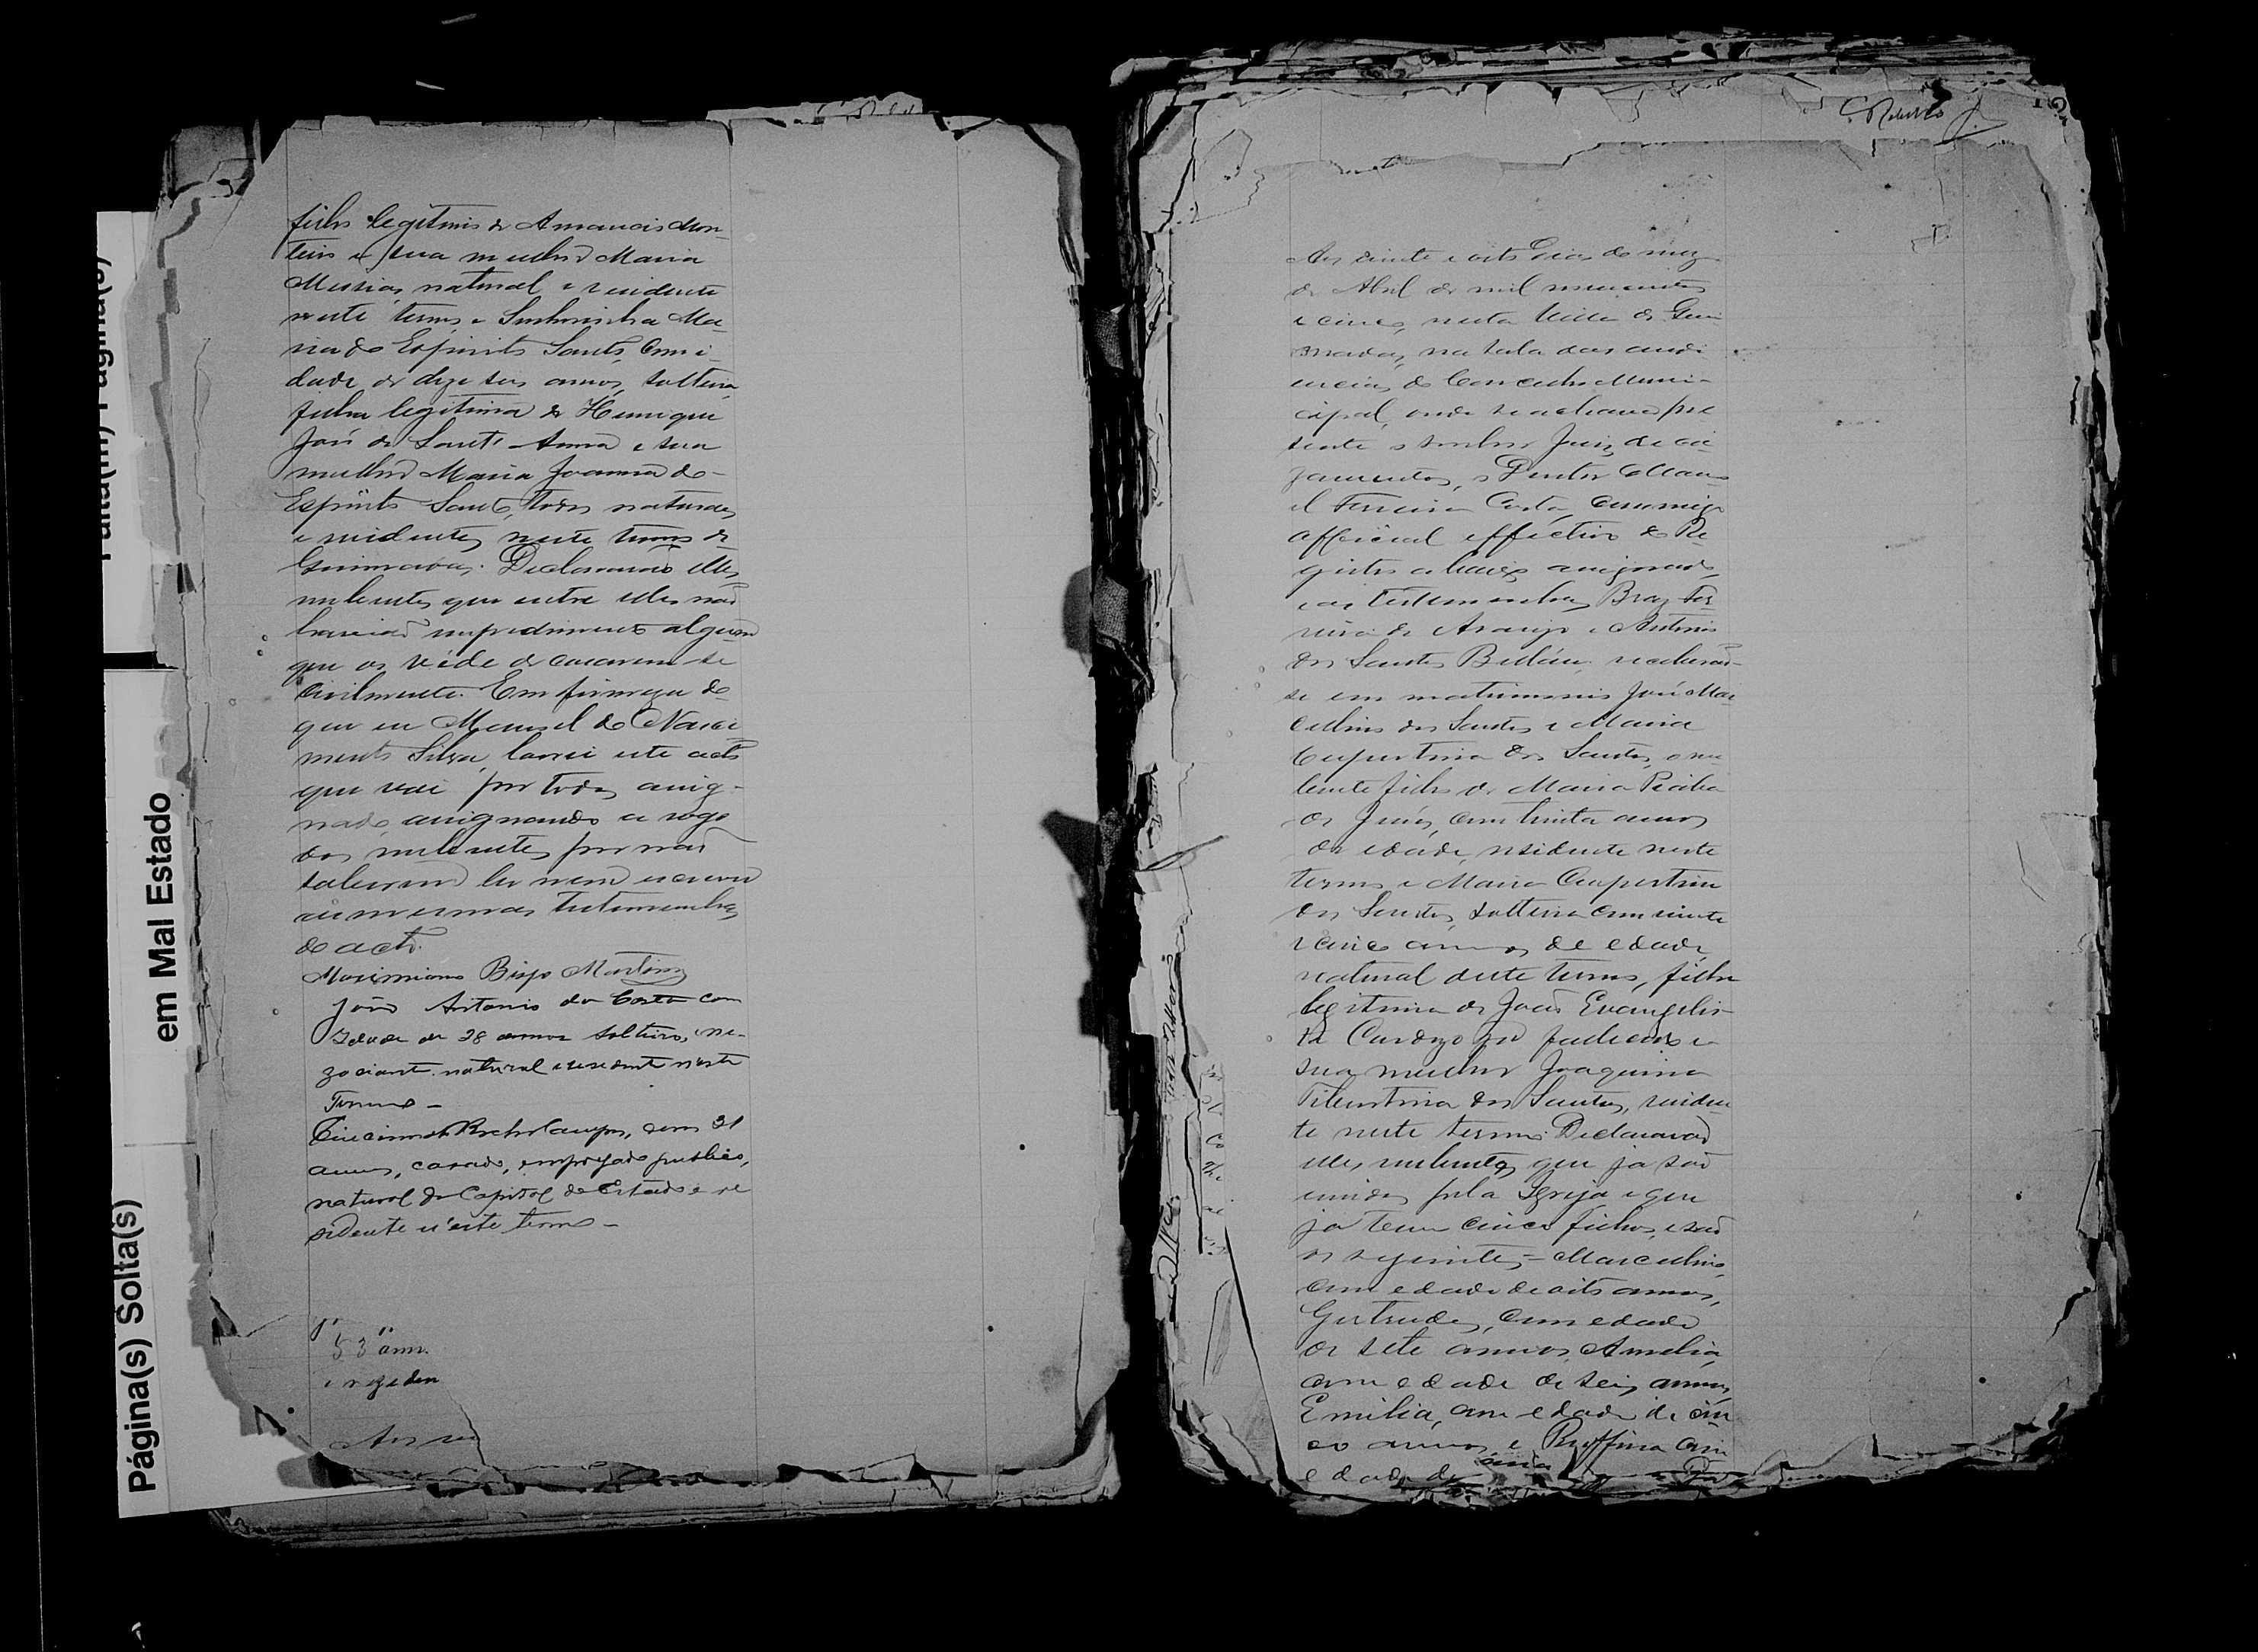 Falta(m) Página(s)
em Mal Estado
Página(s) Solta(s)
filho legitimo de Amancio Mon-
teiro e sua mulher Maria
Messias, natural e residente
neste termo, e Senhorinha Ma-
ria do Espirito Santo, com i-
dade de dizeseis annos, solteira,
filha legitima de Henrique
José de Sant'Anna e sua
mulher Maria Joanna do
Espirito Santo, todos naturaes
e residentes neste termo de
Guimarães. Declararão elles
nubentes que entre elles não
havia impedimento algum
que os véde de casarem-se
civilmente. Em firmeza do
que eu Manoel do Nasci-
mento Silva, lavrei este acto
que vai por todos assig-
nado, assignando a rogo
dos nubentes por não
saberem ler nem escrever
as mesmas testemunhas
do acto.
Maximiano Bispo Martins
João Antonio da Costa com
Idade de 28 annos solteiro, ne-
gociante natural e residente neste
Termo –
com 31
annos, casado, empregado publico,
natural da Capital do Estado e re
sidente n'este termo –
53 ann.
e reziden
Aos
Aos vinte e oito dias do mez
de Abril de mil novecentos
e cinco, nesta Villa de Gui
marães, na sala das audi
encias do Concelho Muni-
cipal, onde se achava pre
sente o senhor Juiz de ca-
zamentos, o Doutor Mano
el Ferreira Costa, commigo
official effectivo do Re
gistro abaixo assignado,
e as testemunhas Braz Fer
reira de Araujo e Antonio
dos Santos Belém, receberão-
se em matrimonio José Mar
cellino dos Santos e Maria
Cupertina dos Santos, o nu
bente filho de Maria
de Jesus, com trinta annos
de edade, residente neste
termo e Maria Cupertina
dos Santos, solteira com vinte
e cinco annos de edade,
natural deste termo, filha
legitima de João Evangelis-
ta Cardozo já fallecido e
sua mulher Joaquina
dos Santos, residen-
te neste termo. Declararão
elles nubentes que já são
unidos pela Igreja e que
já tem cinco filhos, e são
os seguintes – Marcellino,
com edade de oito annos,
Gertrudes, com edade
de sete annos, Amelia,
com edade de seis annos,
Emilia, com edade de cin
co annos, e Ruffina com
edade de